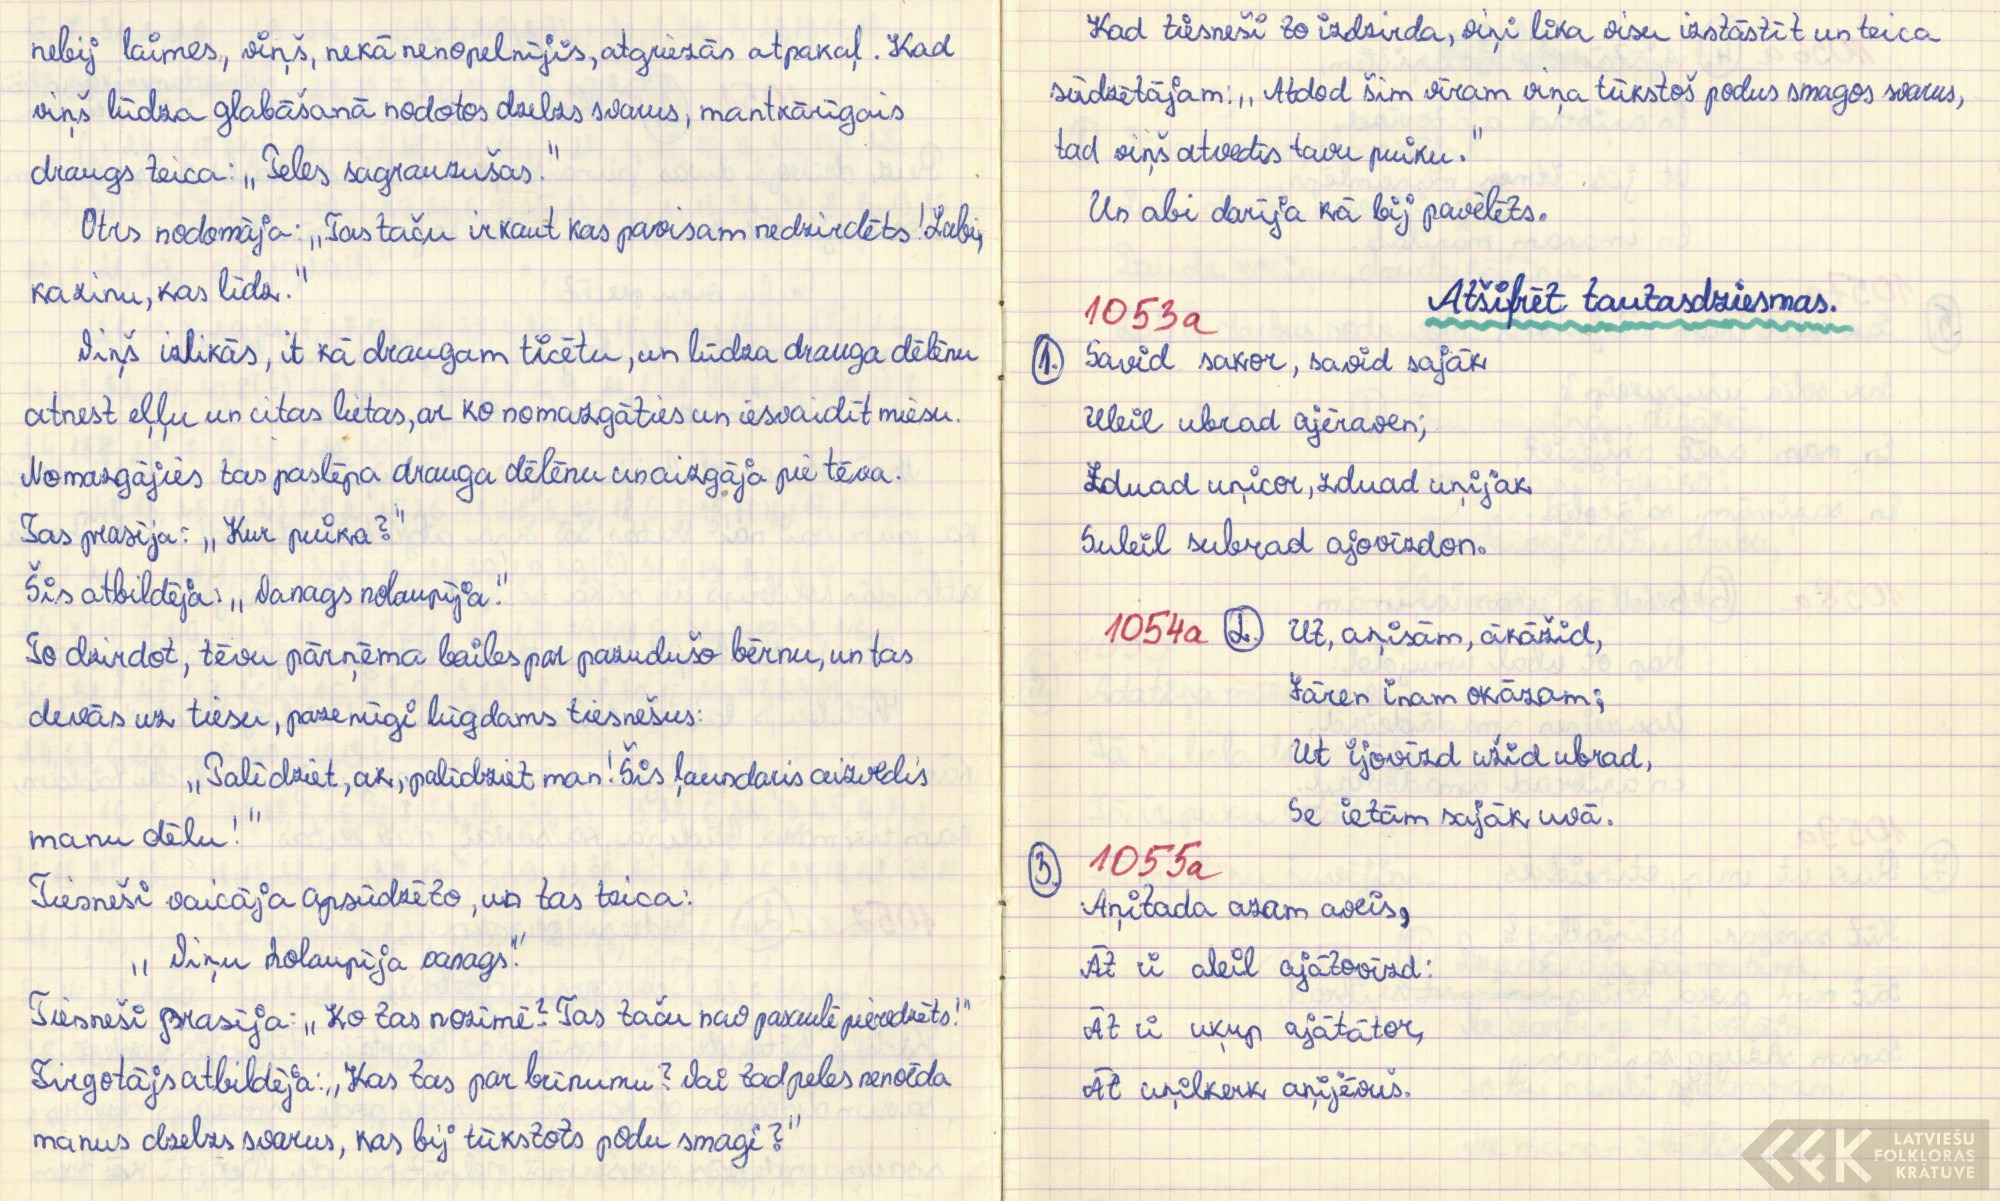 nebij laimes, viņš, nekā nenopelnījis, atgriezās atpakaļ. Kad
viņš lūdza glabāšanā nodotos dzelzs svarus, mantkārīgais
draugs teica: „Peles sagrauzušas."
Otrs nodomāja: „Tas taču ir kaut kas pavisam nedzirdēts! Labi,
ka zinu, kas līdz."
Viņš izlikās, it kā draugam ticētu, un lūdza drauga dēlēnu
atnest eļļu un citas lietas, ar ko nomazgāties un iesvaidīt miesu.
Nomazgājies tas paslēpa drauga dēlēnu un aizgāja pie tēva.
Tas prasīja: „Kur puika?"
Šis atbildēja: „Vanags nolaupīja."
To dzirdot, tēvu pārņēma bailes par pazudušo bērnu, un tas
devās uz tiesu, pazemīgi lūgdams tiesnešus:
„Palīdziet, ak, palīdziet man! Šis ļaundaris aizvedis
manu dēlu!"
Tiesneši vaicāja apsūdzēto, un tas teica:
„Viņu nolaupīja vanags."
Tiesneši prasīja: „Ko tas nozīmē? Tas taču nav pasaulē pieredzēts!"
Tirgotājs atbildēja: „Kas tas par brīnumu? Vai tad peles nenoēda
manus dzelzs svarus, kas bij tūkstots podu smagi?"
Kad tiesneši to izdzirda, viņi lika visu izstāstīt un teica
sūdzētājam: „Atdod šim vīram viņa tūkstoš podus smagos svarus,
tad viņš atvedīs tavu puiku."
Un abi darīja kā bij pavēlēts.
Atšifrēt tautasdziesmas.
1053a
1. Savid sakor, savid sajāk
Uleil ubrad ajēraven;
Zduad uņicor, zduad uņijāk
Suleil subrad ajovīzdon.
1054a 2. Ut, aņisām, ākāžid,
Zāren inam okāzam;
Ut ījovīzd užid ubrad,
Se ietām sajāk uvā.
3. 1055a
Aņitada azam aveis,
Āt ū aleil ajātovīzd:
Āt ū ukup ajātātor,
Āt uņilkerk aņijēvuš.
LATVIEŠU
FOLKLORAS
KRĀTUVE